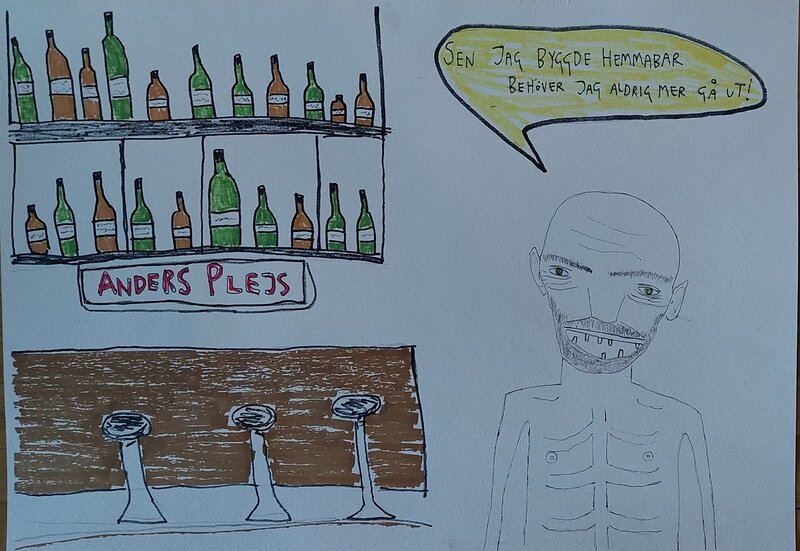 SEN JAG BYGGDE HEMMABAR
BEHÖVER JAG ALDRIG MER GÅ UT!
ANDERS PLEJS